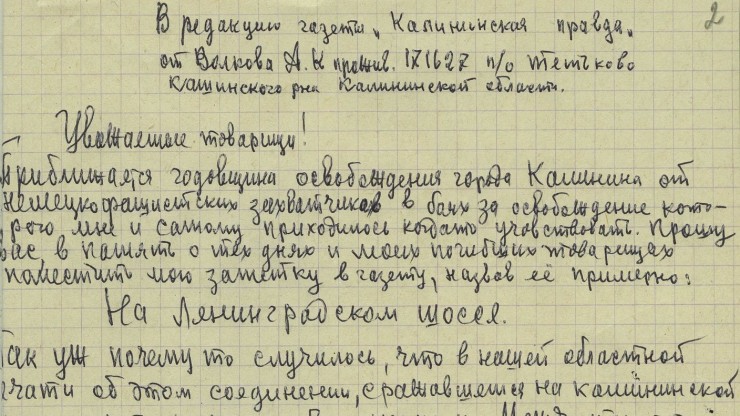 2
В редакцию газеты „Калининская правда„
от Волкова А. К прожив. 171627 п/о Тетьково
Кашинского р-на Калининской области.
Уважаемые товарищи!
Приближается годовщина освобождения города Калинина от
немецкофашистских захватчиков в боях за освобождение кото-
рого мне и самому приходилось когдато учавствовать. Прошу
вас, в память о тех днях и моих погибших товарищах
поместить мою заметку в газету, назвав её примерно:
На Ленинградском шоссе.
Так уж почему то случилось, что в нашей областной
печати об этом соединении, сражавшемся на калининской